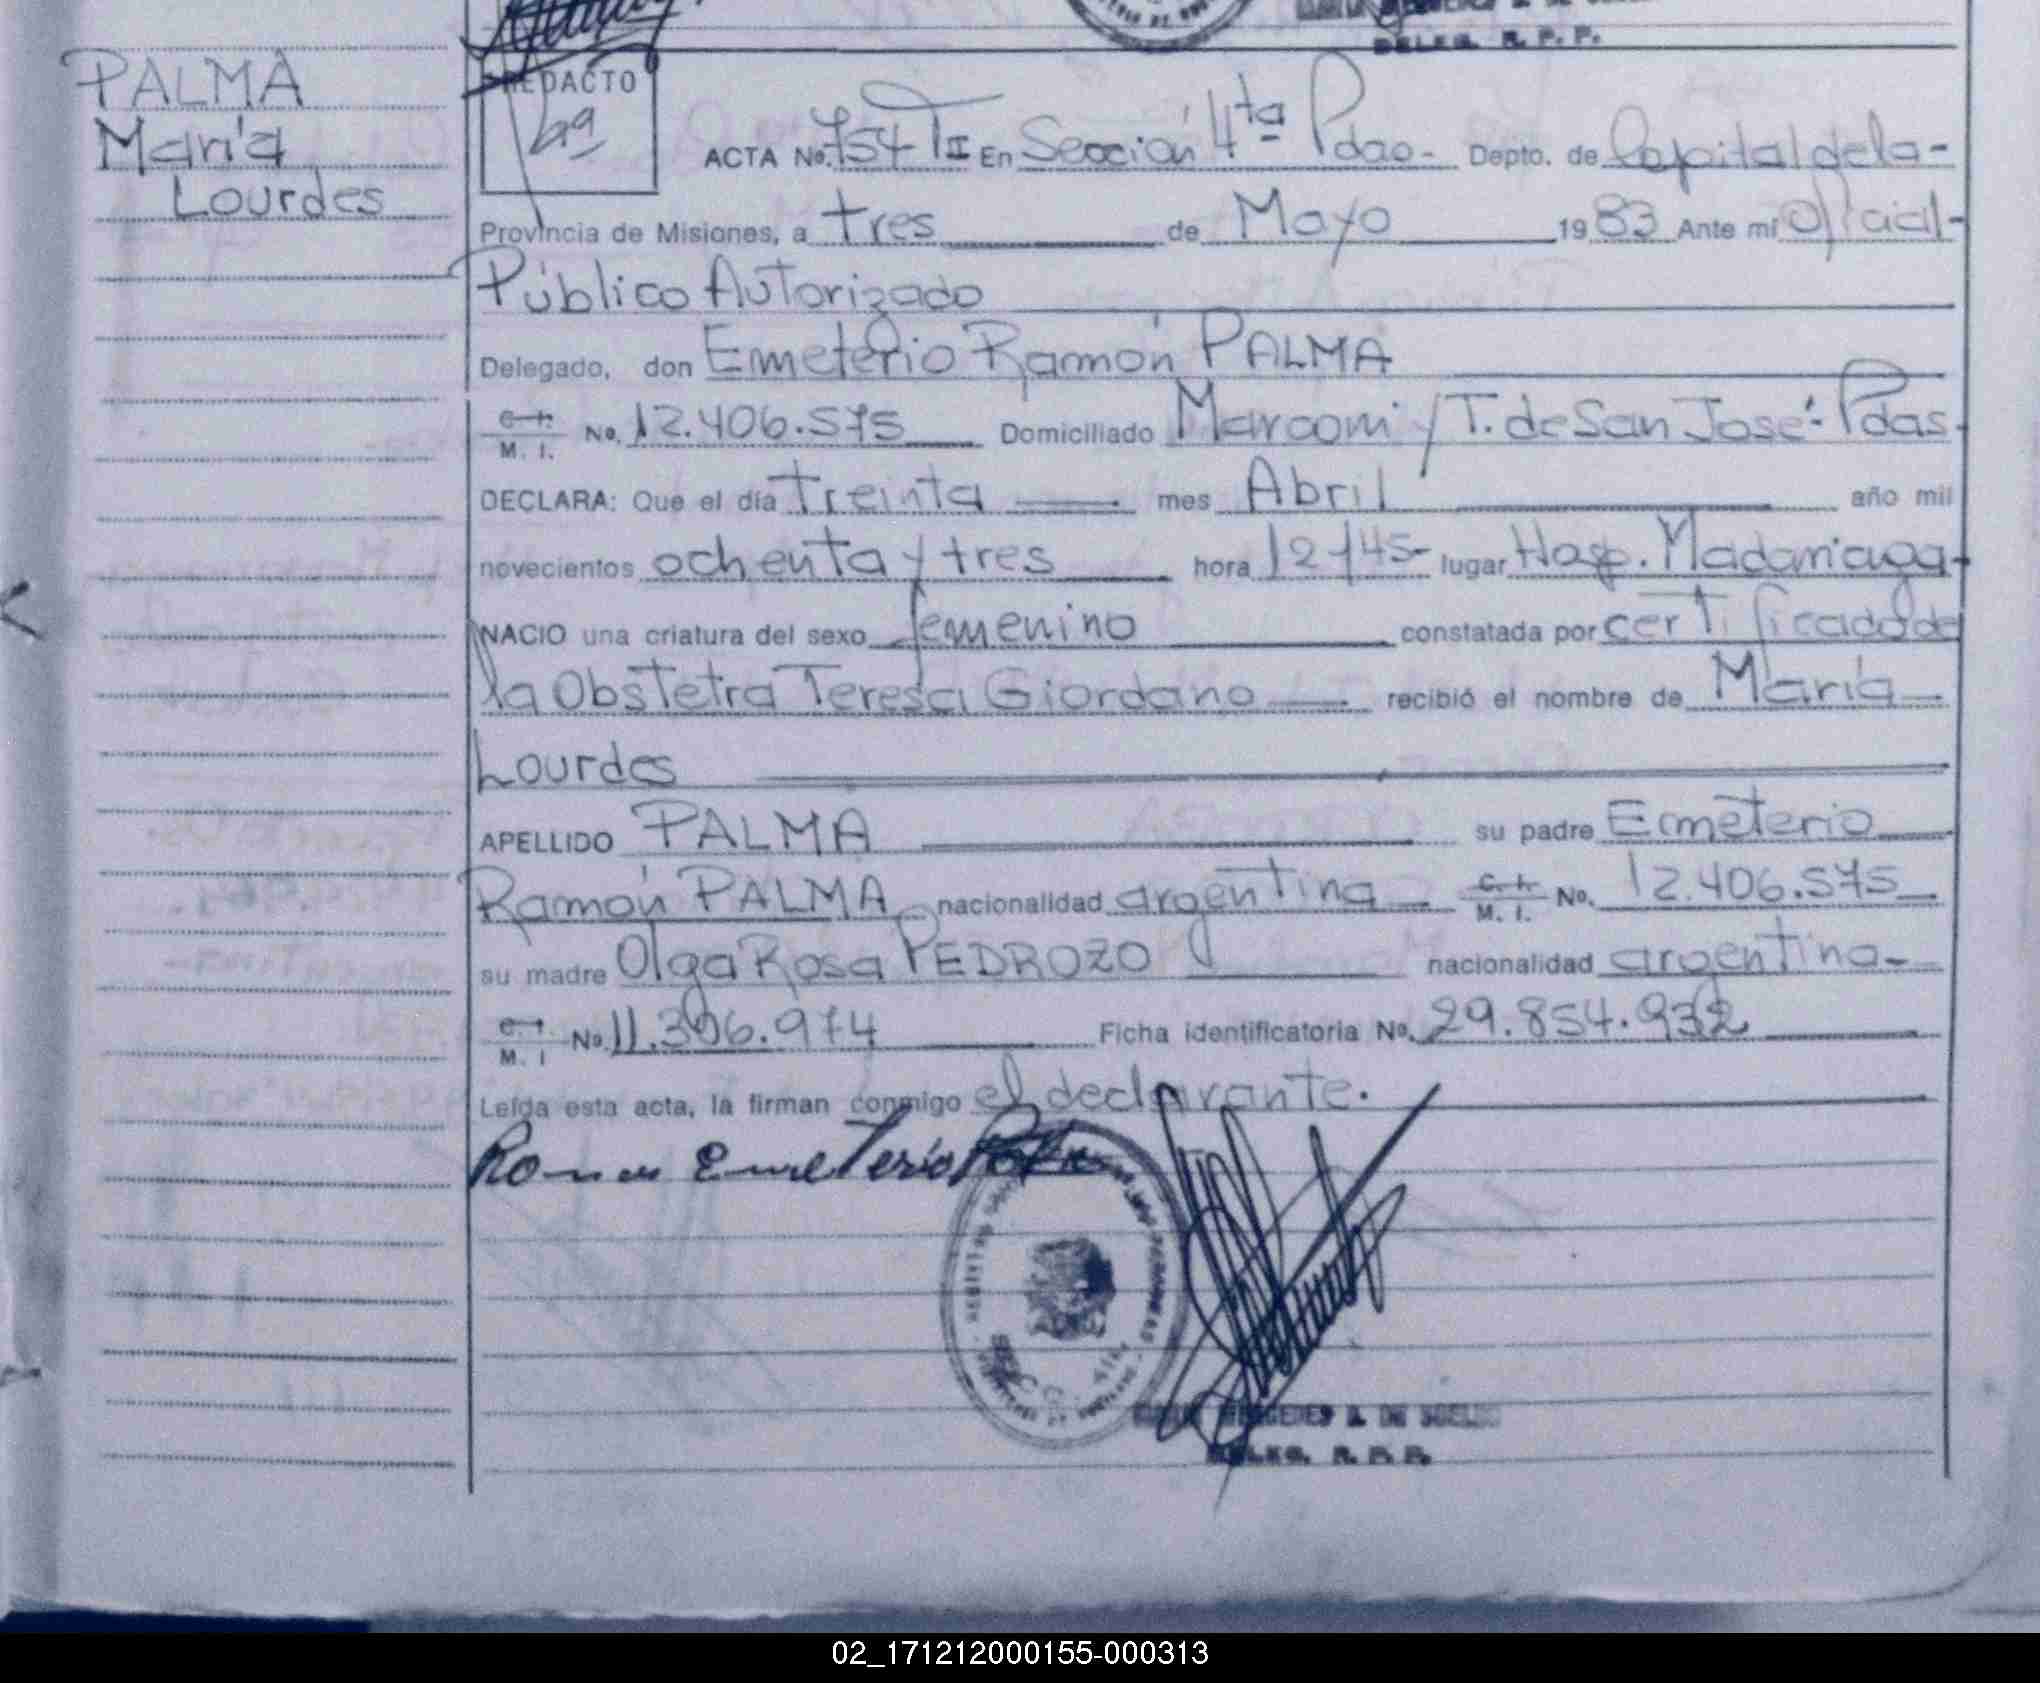 DELEG. R. P. P.
PALMA
María
Lourdes
REDACTO
ACTA No. 754 TII En Sección 4ta Pdas- Depto. de Capital de la-
Provincia de Misiones, a tres de Mayo 1983 Ante mí Oficial-
Público Autorizado
Delegado, don Emeterio Ramón PALMA
C. I.
M. I. No. 12.406.575 Domiciliado Marconi y T. de San José - Pdas.
DECLARA: Que el día treinta mes Abril año mil
novecientos ochenta y tres hora 12,45- lugar Hosp. Madariaga-
NACIO una criatura del sexo femenino constatada por certificado de
la Obstetra Teresa Giordano recibió el nombre de María
Lourdes
APELLIDO PALMA su padre Emeterio
Ramón PALMA nacionalidad argentina C. I. M. I. No. 12.406.575
su madre Olga Rosa PEDROZO nacionalidad argentina-
C. I.
M. I No. 11.306.974 Ficha identificatoria No. 29.854.932
Leída esta acta, la firman conmigo el declarante.
Ramon Emeterio Palma
MERCEDES A. DE
DELEG. R. P. P.
02_171212000155-000313